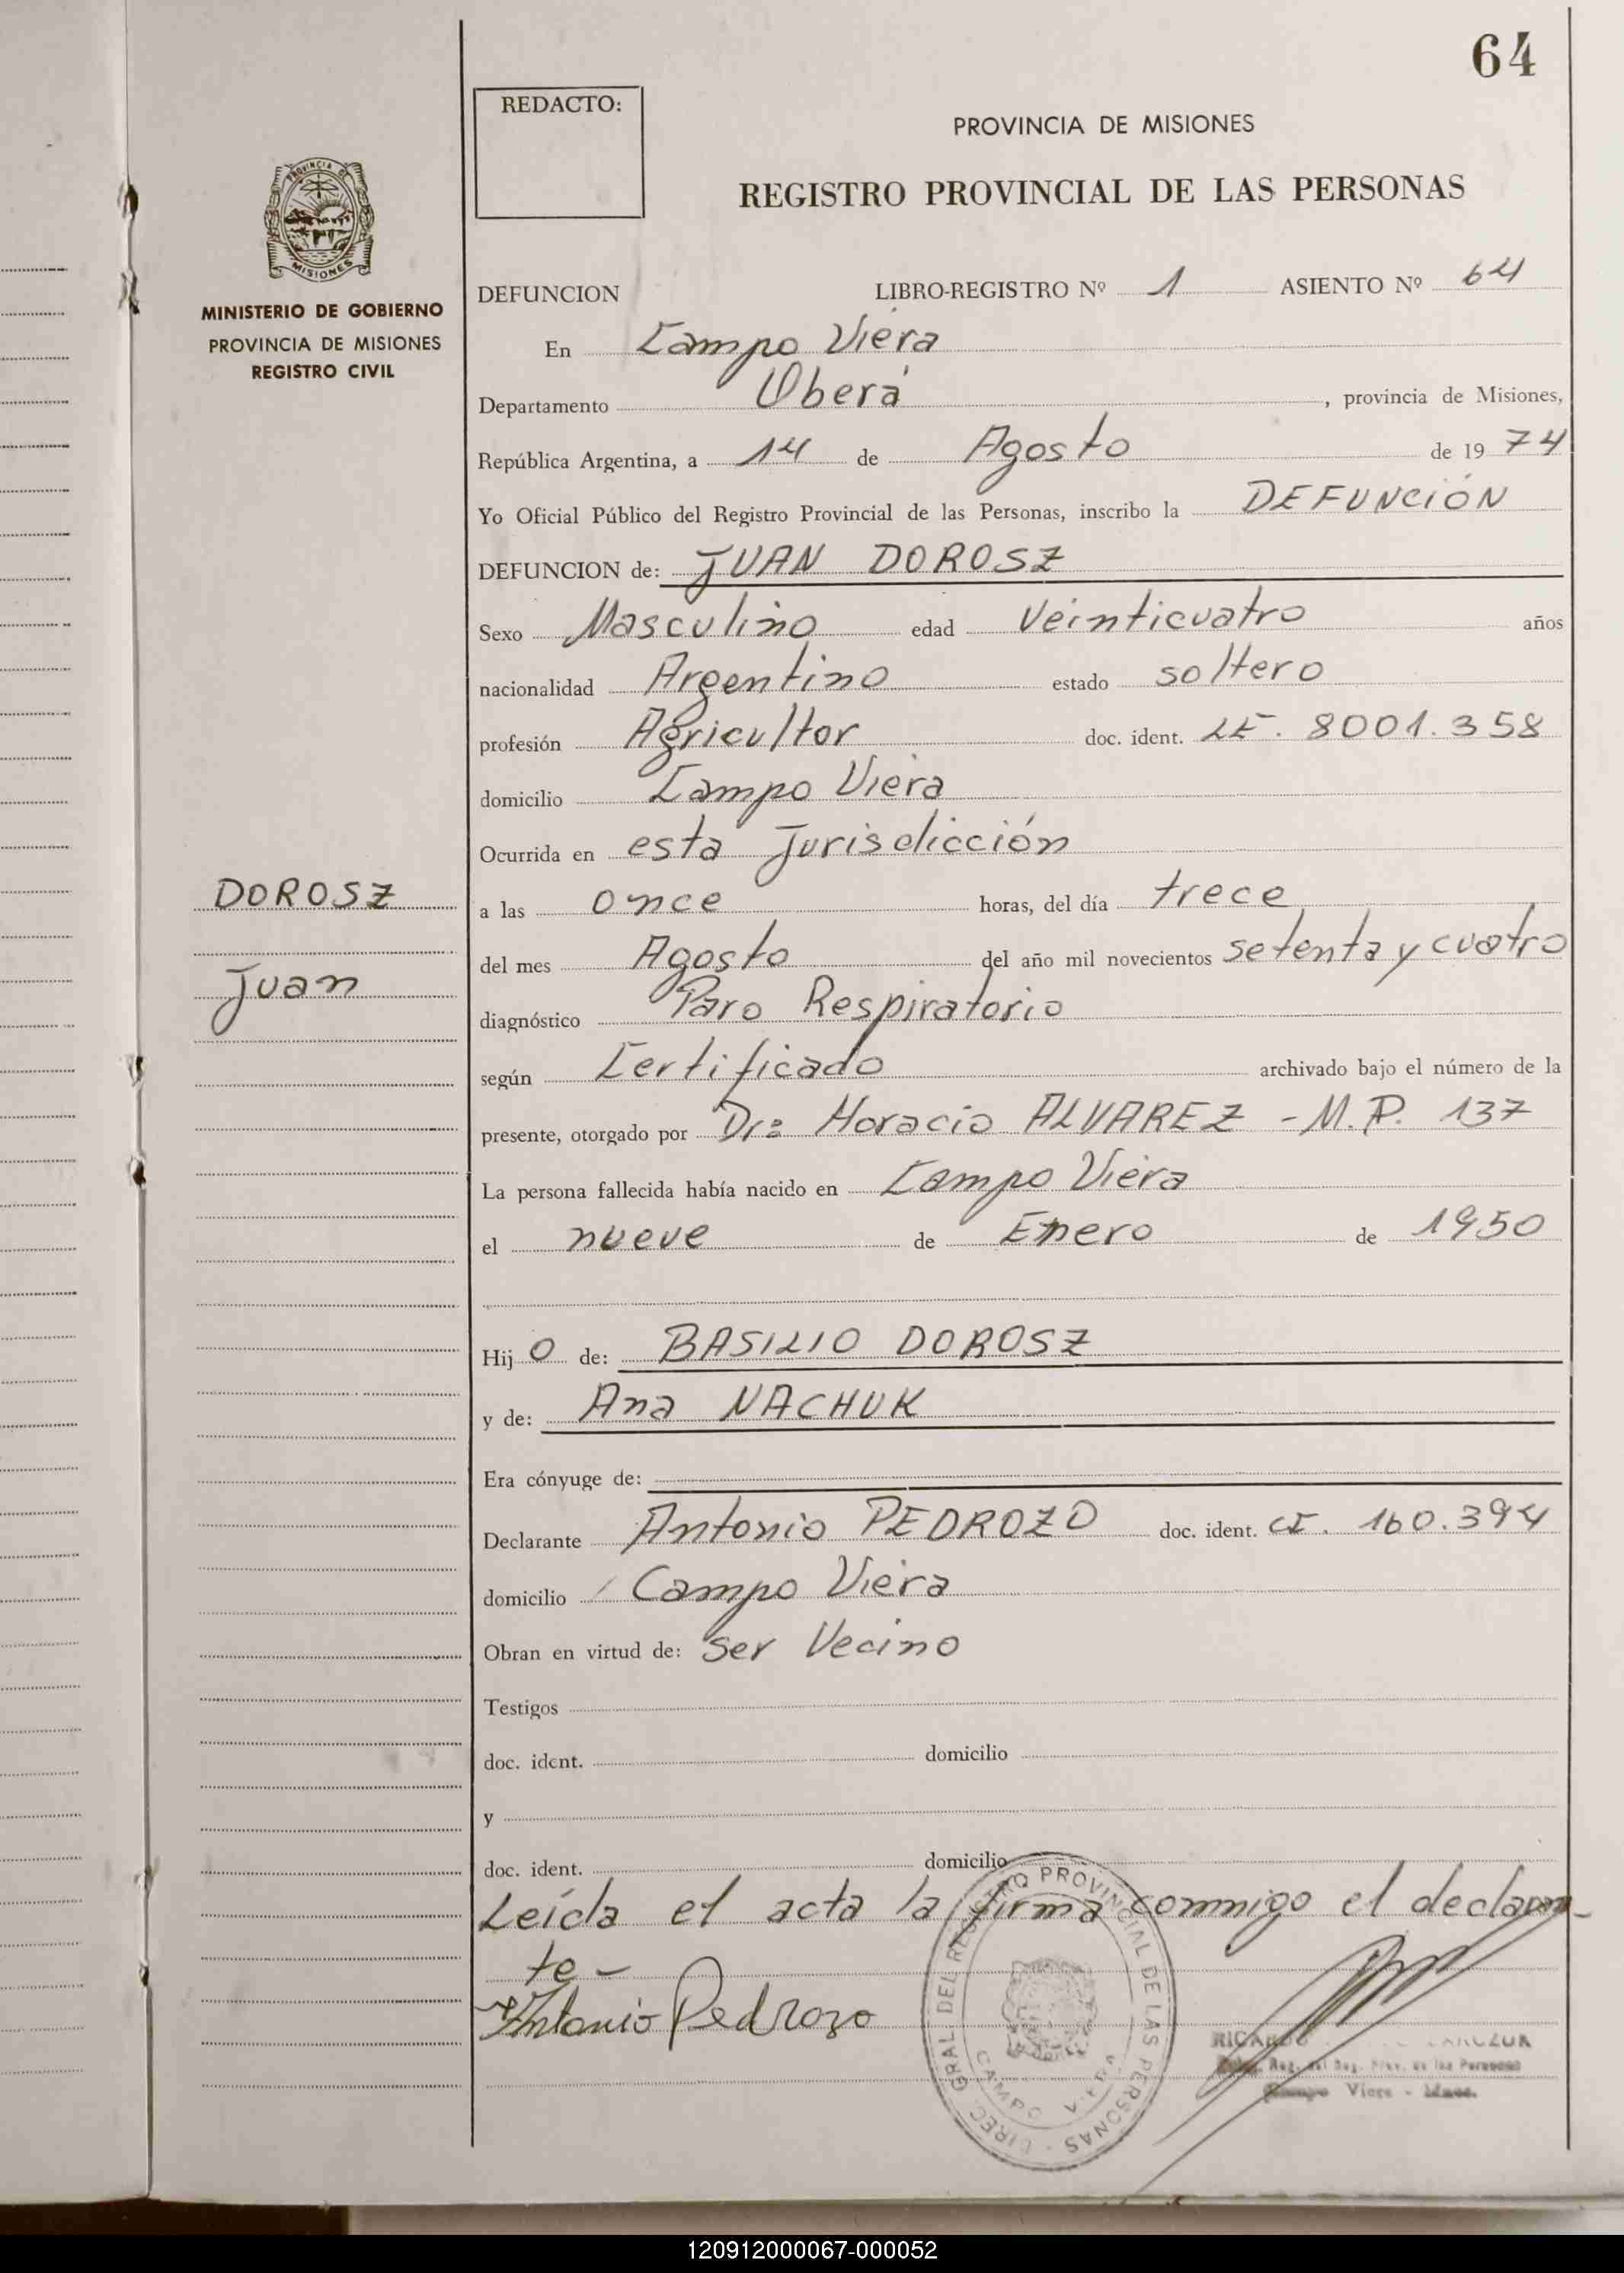 64
REDACTO:
PROVINCIA DE MISIONES
REGISTRO PROVINCIAL DE LAS PERSONAS
PROVINCIA DE
MISIONES
MINISTERIO DE GOBIERNO
PROVINCIA DE MISIONES
REGISTRO CIVIL
DEFUNCION LIBRO-REGISTRO Nº 1 ASIENTO Nº 64
En Campo Viera
Departamento Oberá, provincia de Misiones,
República Argentina, a 14 de Agosto de 1974
Yo Oficial Público del Registro Provincial de las Personas, inscribo la DEFUNCIÓN
DEFUNCION de: JUAN DOROSZ
Sexo Masculino edad Veinticuatro años
nacionalidad Argentino estado soltero
profesión Agricultor doc. ident. LE. 8001.358
domicilio Campo Viera
Ocurrida en esta Jurisdicción
DOROSZ
Juan
a las once horas, del día trece
del mes Agosto del año mil novecientos setenta y cuatro
diagnóstico Paro Respiratorio
según Certificado archivado bajo el número de la
presente, otorgado por Dr: Horacio ALVAREZ - M.P. 137
La persona fallecida había nacido en Campo Viera
el nueve de Enero de 1950
Hijo de: BASILIO DOROSZ
y de: Ana NACHUK
Era cónyuge de:
Declarante Antonio PEDROZO doc. ident. CI. 160.394
domicilio Campo Viera
Obran en virtud de: ser Vecino
Testigos
doc. ident. domicilio
y
doc. ident. domicilio
Leída el acta la firma conmigo el declaran-
te -
Antonio Pedrozo
DIREC. GRAL. DEL REGISTRO PROVINCIAL DE LAS PERSONAS
CAMPO VIERA
RICARDO
Reg. del Reg. Prov. de las Personas
Campo Viera - Mnes.
120912000067-000052